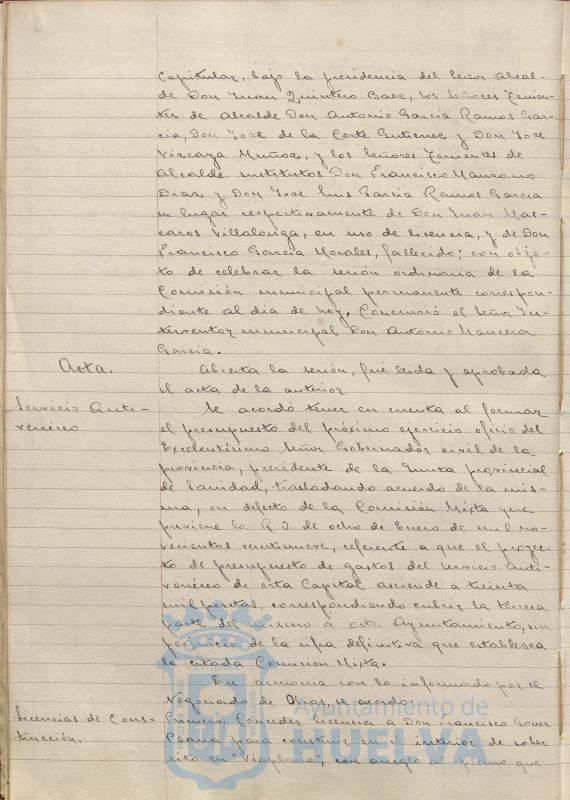 Capitular, bajo la presidencia del Señor Alcal-
de Don Juan Quintero Baez, los Señores Tenien-
tes de Alcalde Don Antonio Garcia Ramos Gar-
cia, Don Jose de la Corte Gutierrez y Don Jose
Vizcaya Muñoz, y los Señores Tenientes de
Alcalde sustitutos Don Francisco Manzano
Diaz y Don Jose Luis Garcia Ramos Garcia
en lugar respectivamente de Don Juan
Villalonga, en uso de licencia, y de Don
Francisco Garcia Morales, fallecido; con obje-
to de celebrar la sesión ordinaria de la
Comisión municipal permanente correspon-
diente al dia de hoy. Concurrió el Señor In-
terventor municipal Don Antonio Mancera
Garcia.
Acta.
Abierta la sesión, fué leida y aprobada
el acta de la anterior
Servicio Anti-
venéreo
Se acordó tener en cuenta al formar
el presupuesto del próximo ejercicio oficio del
Excelentísimo Señor Gobernador civil de la
provincia, presidente de la Junta provincial
de Sanidad, trasladando acuerdo de la mis-
ma, en defecto de la Comisión Mixta que
previene la R. O. de ocho de Enero de mil no-
vecientos veintinueve, referente a que el proyec-
to de presupuesto de gastos del servicio Anti-
venéreo de esta Capital asciende a treinta
mil pesetas, correspondiendo cubrir la tercera
parte del mismo a este Ayuntamiento, sin
perjuicio de la cifra definitiva que establezca
la citada Comisión Mixta.
En armonia con lo informado por el
Negociado de Obras, se acordó:
Licencias de Cons-
trucción.
Primero. Conceder licencia a Don Francisco Gomez
Plana para construir en el interior de solar
sito en "Viaplana", con arreglo a plano que
Ayuntamiento de
HUELVA